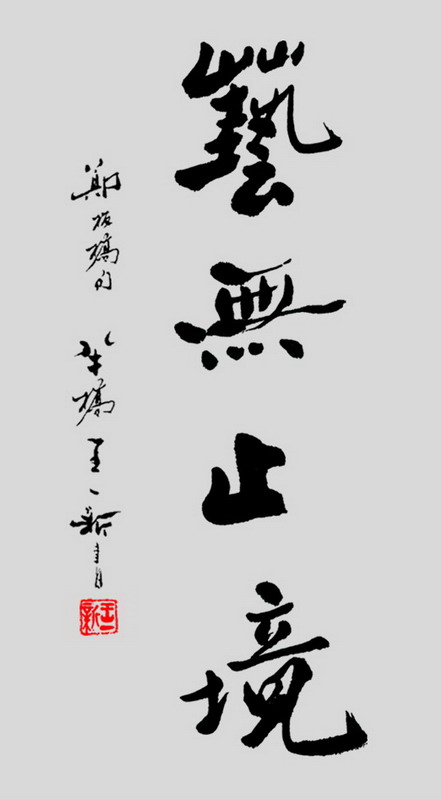 藝無止境
鄭板橋句 半橋王一新書
王一新